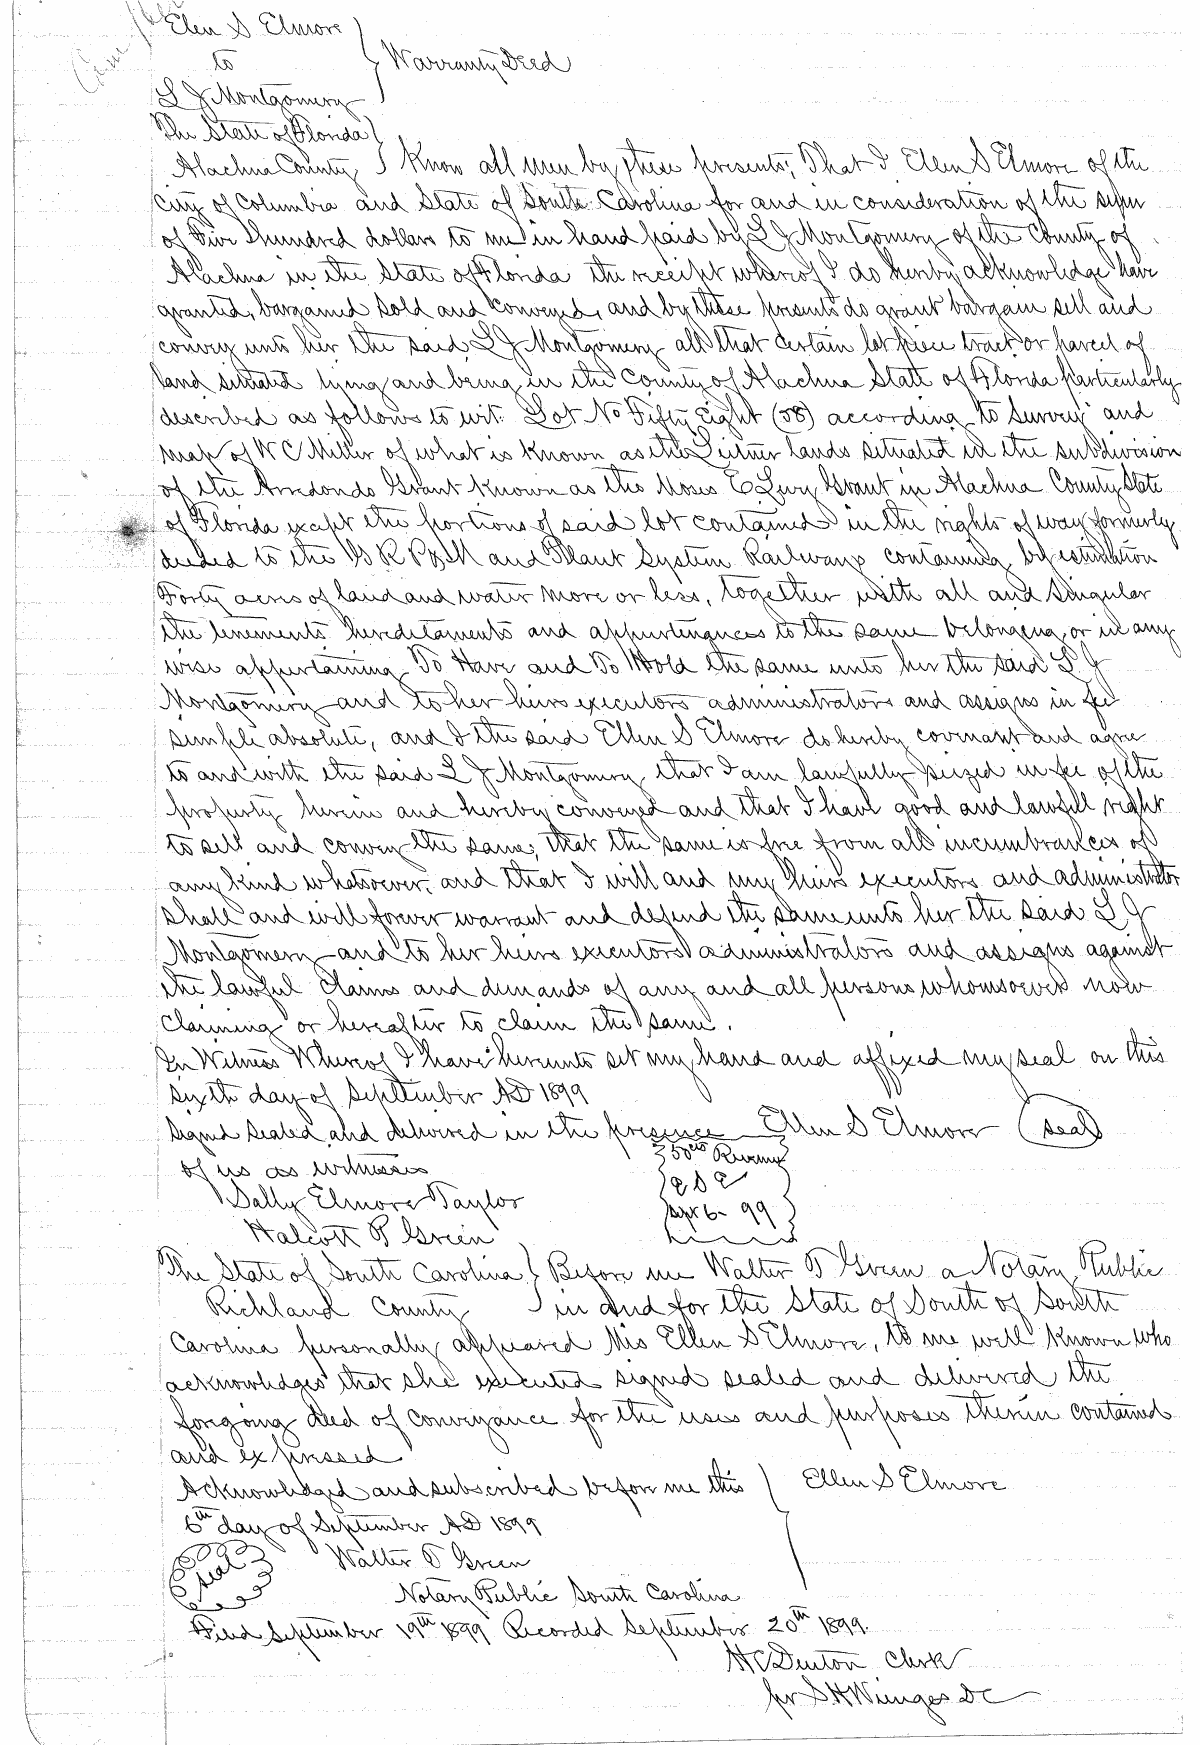 Elen S Elmore
to } Warranty Deed
L J Montgomery
The State of Florida }
Alachua County } Know all men by these presents; That I, Ellen S Elmore of the
City of Columbia and State of South Carolina for and in consideration of the sum
of Five Hundred dollars to me in hand paid by L J Montgomery of the County of
Alachua in the State of Florida the receipt whereof I do hereby acknowledge have
granted, bargained sold and conveyed, and by these presents do grant bargain sell and
convey unto her the said L J Montgomery all that certain lot piece tract or parcel of
land situated lying and being in the County of Alachua State of Florida particularly
described as follows to wit: Lot No Fifty Eight (58) according to Survey and
map of W C Miller of what is known as the Leitner lands situated in the subdivision
of the Arredondo Grant known as the Moses E Levy Grant in Alachua County State
of Florida except the portions of said lot contained in the rights of way formerly
deeded to the G R R and Plant System Railways containing by estimation
Forty acres of land and water more or less, together with all and singular
the tenements hereditaments and appurtenances to the same belonging or in any
wise appertaining To Have and To Hold the same unto her the said L J
Montgomery and to her heirs executors administrators and assigns in fee
simple absolute, and I the said Ellen S Elmore do hereby covenant and agree
to and with the said L J Montgomery that I am lawfully seized in fee of the
property herein and hereby conveyed and that I have good and lawful right
to sell and convey the same; that the same is free from all incumbrances of
any kind whatsoever, and that I will and my heirs executors and administrator
shall and will forever warrant and defend the same unto her the said L J
Montgomery and to her heirs executors administrators and assigns against
the lawful claims and demands of any and all persons whomsoever now
claiming or hereafter to claim the same.
In Witness Whereof I have hereunto set my hand and affixed my seal on this
sixth day of September AD 1899
Signed sealed and delivered in the presence Ellen S Elmore (seal)
of us as witnesses 50cts Revenue
Sally Elmore Taylor ESE
Halcott P Green Sept 6 - 99
The State of South Carolina } Before me Walter T Green a Notary Public
Richland County } in and for the State of South of South
Carolina personally appeared Mis Ellen S Elmore, to me well known who
acknowledges that she executed signed sealed and delivered the
foregoing deed of conveyance for the uses and purposes therein contained
and expressed
Acknowledged and subscribed before me this } Ellen S Elmore
6th day of September AD 1899
(seal) Walter T Green
Notary Public South Carolina
Filed September 19th 1899 Recorded September 20th 1899.
H C Denton Clerk
pr S H Wienges DC